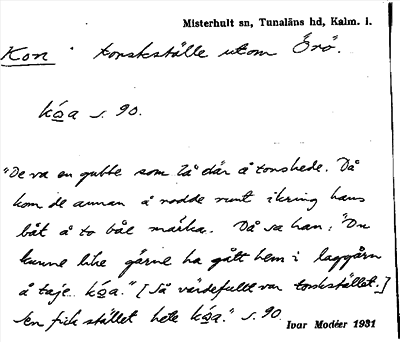 Misterhult sn, Tunaläns hd, Kalm. l.
Kon torskställe utom Örö.
kóa s. 90.
"De va en gubbe som lå där å torskede. Då
kom de annan å rodde runt ikring hans
båt å to båe märka. Då sa han: "Du
kunne like gärne ha gått hem i laggårn
å taje kóa." [Så värdefullt var torskstället.]
Sen fick stället hete kóa." s. 90
Ivar Modéer 1931